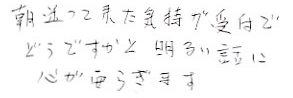 朝送って来た気持が受付で
どうですかと明るい話に
心が安らぎます